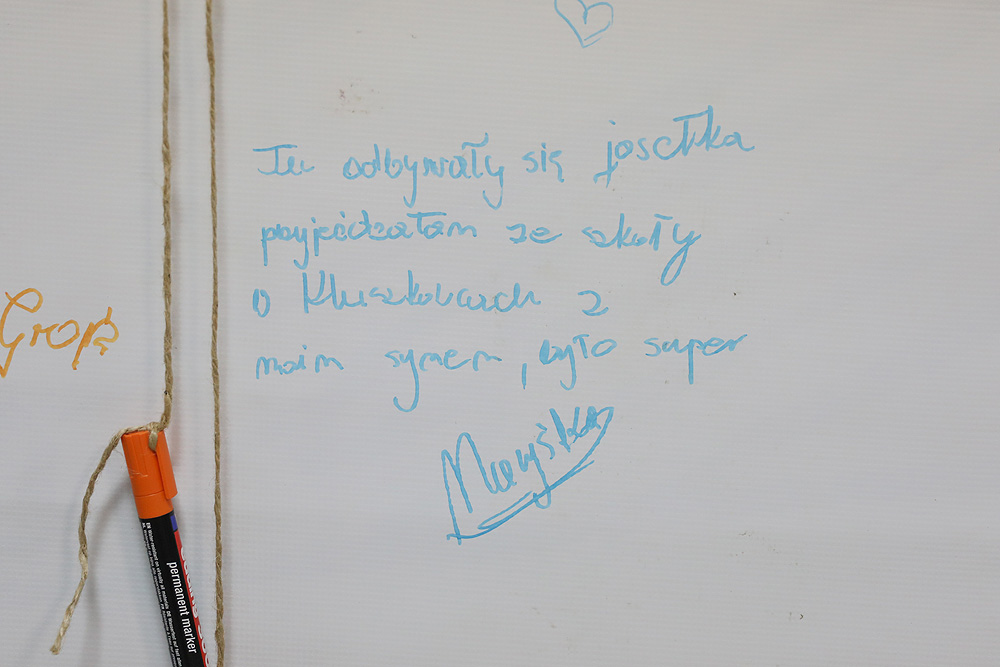 Tu odbywały się josełka
przyjeżdżałam ze szkoły
o Kluszkowcach z
moim synem, było super
Maryśka
Grop
permanent marker